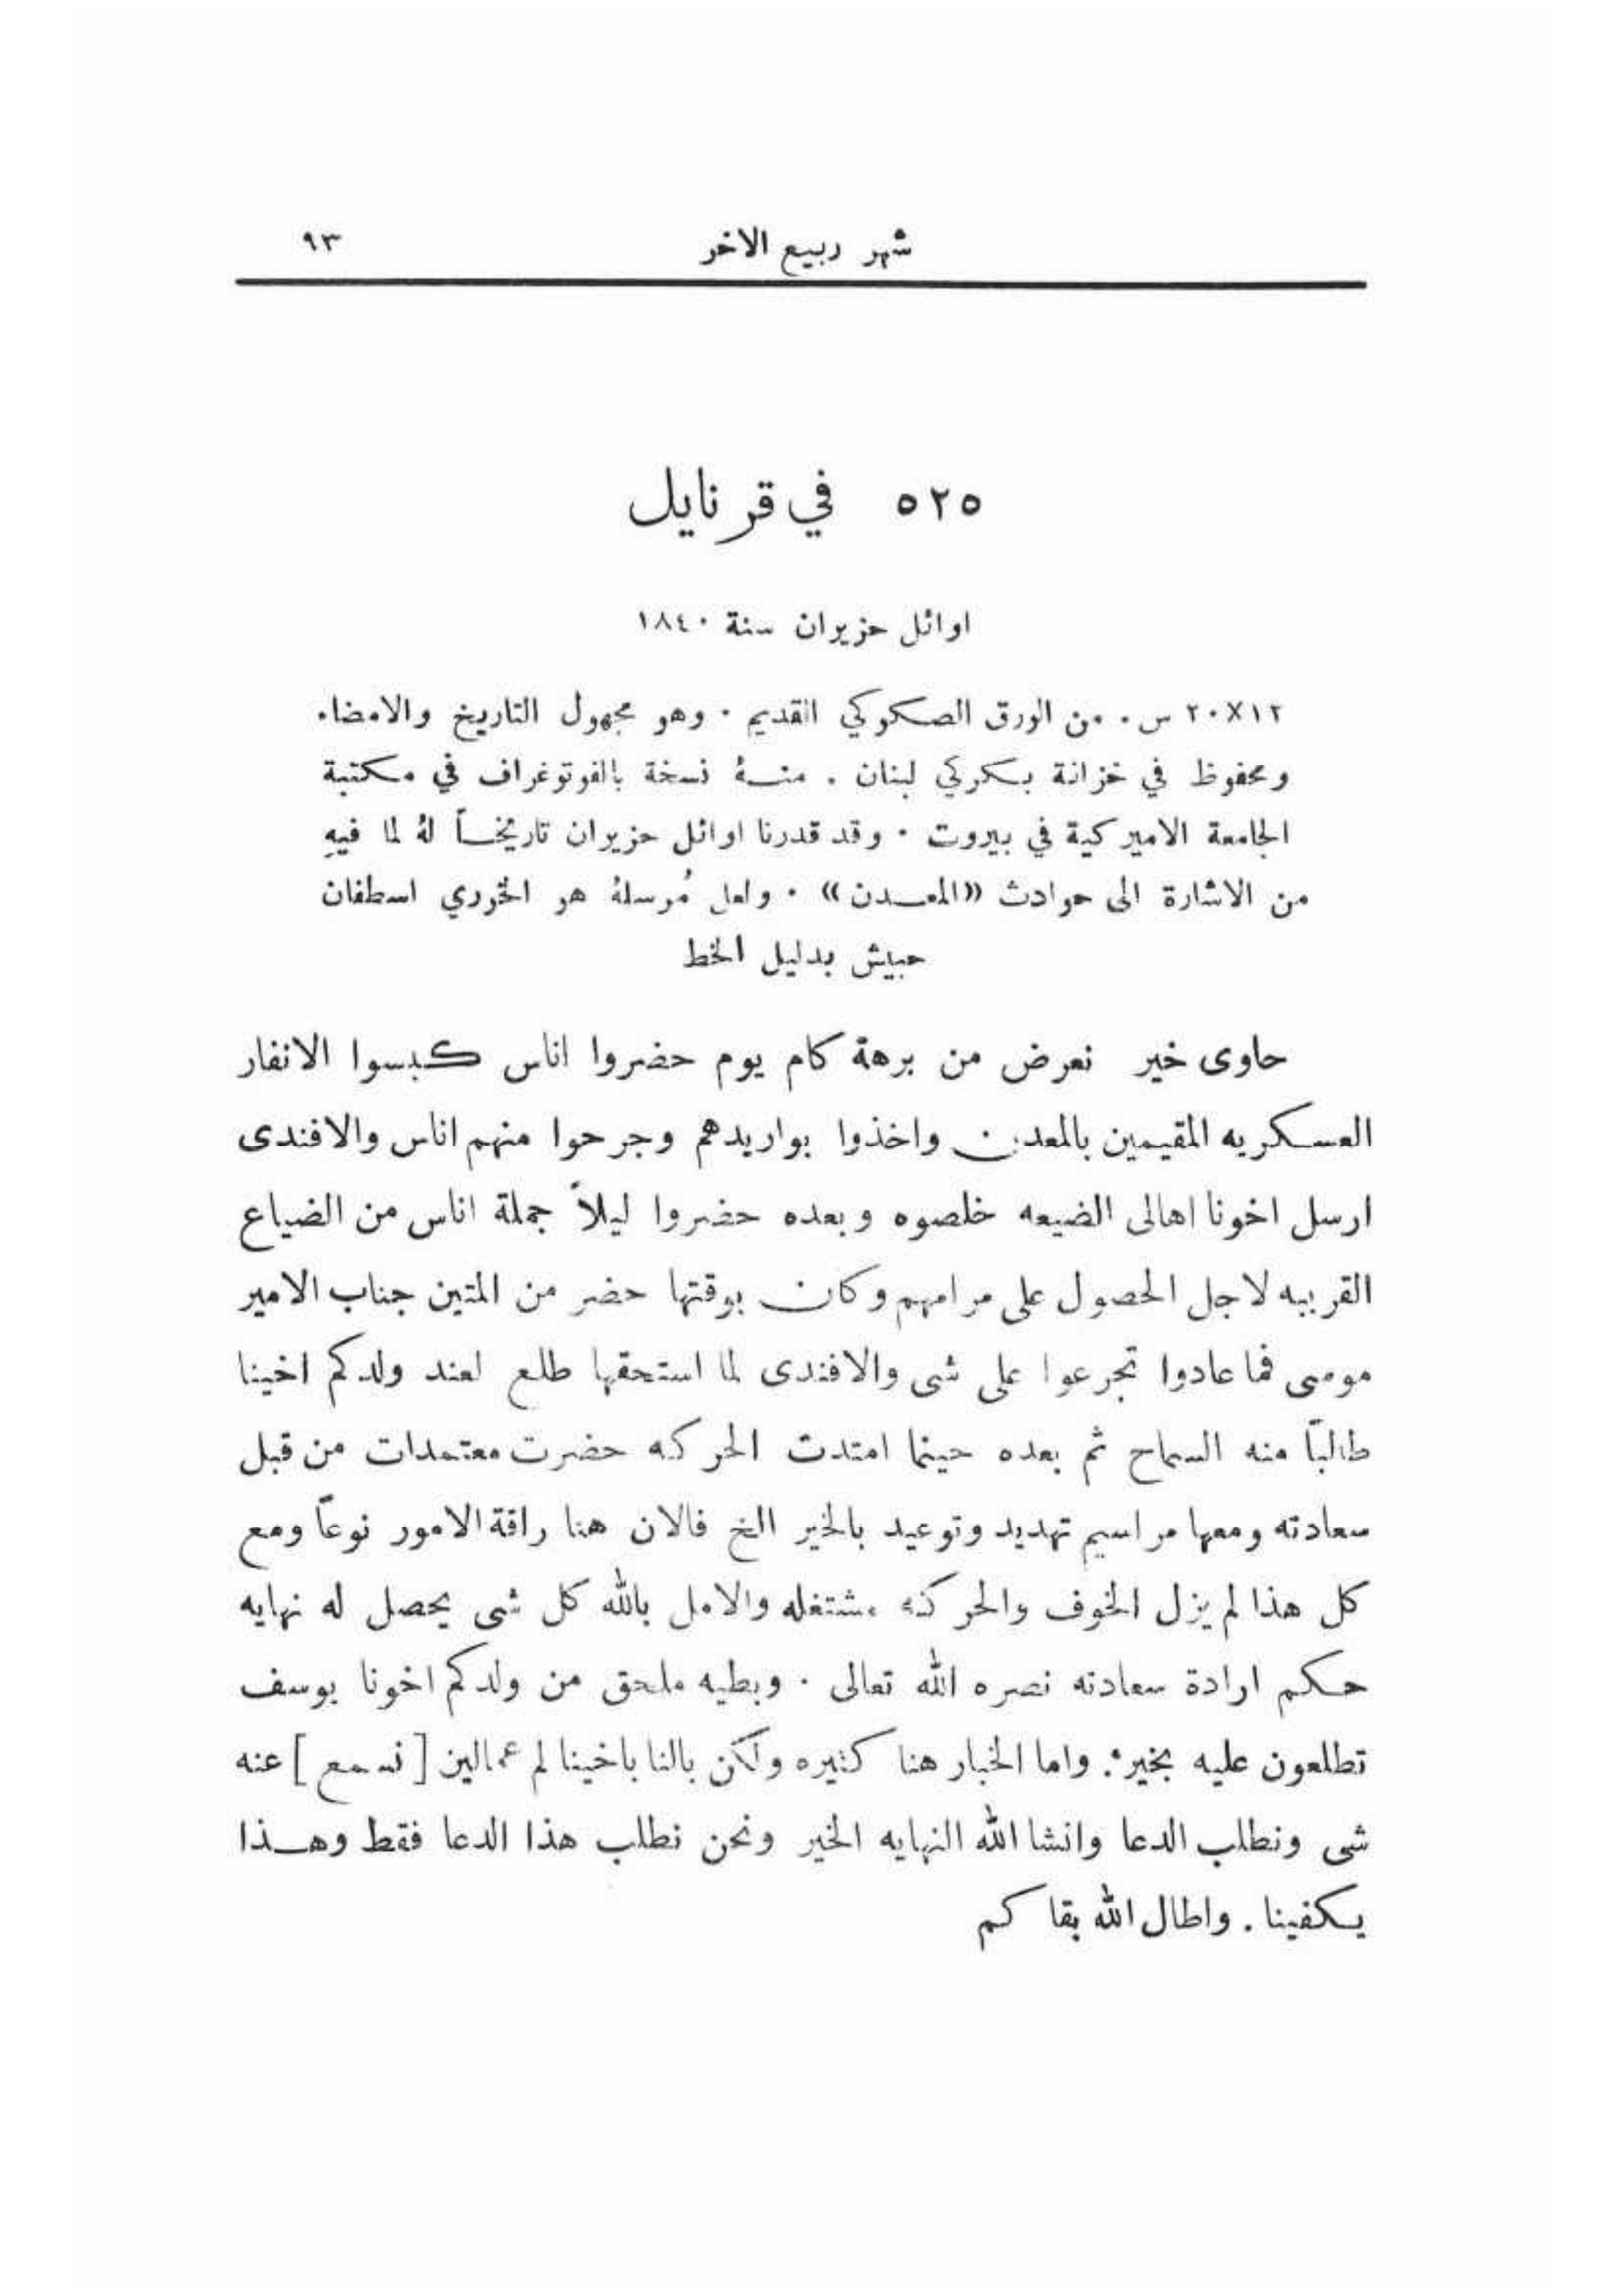 شهر ربيع الاخر ٩٣
٥٢٥ في قرنايل
اوائل حزيران سنة ١٨٤٠
١٢×٢٠ س. من الورق الصكوكي القديم. وهو مجهول التاريخ والامضاء
ومحفوظ في خزانة بكركي لبنان. منهُ نسخة بالفوتوغراف في مكتبة
الجامعة الاميركية في بيروت. وقد قدرنا اوائل حزيران تاريخاً لهُ لما فيهِ
من الاشارة الى حوادث «المعدن». ولعل مُرسلهُ هو الخوري اسطفان
حبيش بدليل الخط
حاوى خير نعرض من برهة كام يوم حضروا اناس كبسوا الانفار
العسكريه المقيمين بالمعدن واخذوا بواريدهم وجرحوا منهم اناس والافندى
ارسل اخونا اهالى الضيعه خلصوه وبعده حضروا ليلاً جملة اناس من الضياع
القريبه لاجل الحصول على مرامهم وكان بوقتها حضر من المتين جناب الامير
موسى فما عادوا تجرعوا على شى والافندى لما استحقها طلع لعند ولدكم اخينا
طالباً منه السماح ثم بعده حينما امتدت الحركه حضرت معتمدات من قبل
سعادته ومعها مراسيم تهديد وتوعيد بالخير الخ فالان هنا راقة الامور نوعاً ومع
كل هذا لم يزل الخوف والحركه مشتغله والامل بالله كل شى يحصل له نهايه
حكم ارادة سعادته نصره الله تعالى. وبطيه ملحق من ولدكم اخونا يوسف
تطلعون عليه بخير. واما الاخبار هنا كثيره ولكن بالنا باخينا لم عمالين [نسمع] عنه
شى ونطلب الدعا وانشا الله النهايه الخير ونحن نطلب هذا الدعا فقط وهذا
يكفينا. واطال الله بقاكم